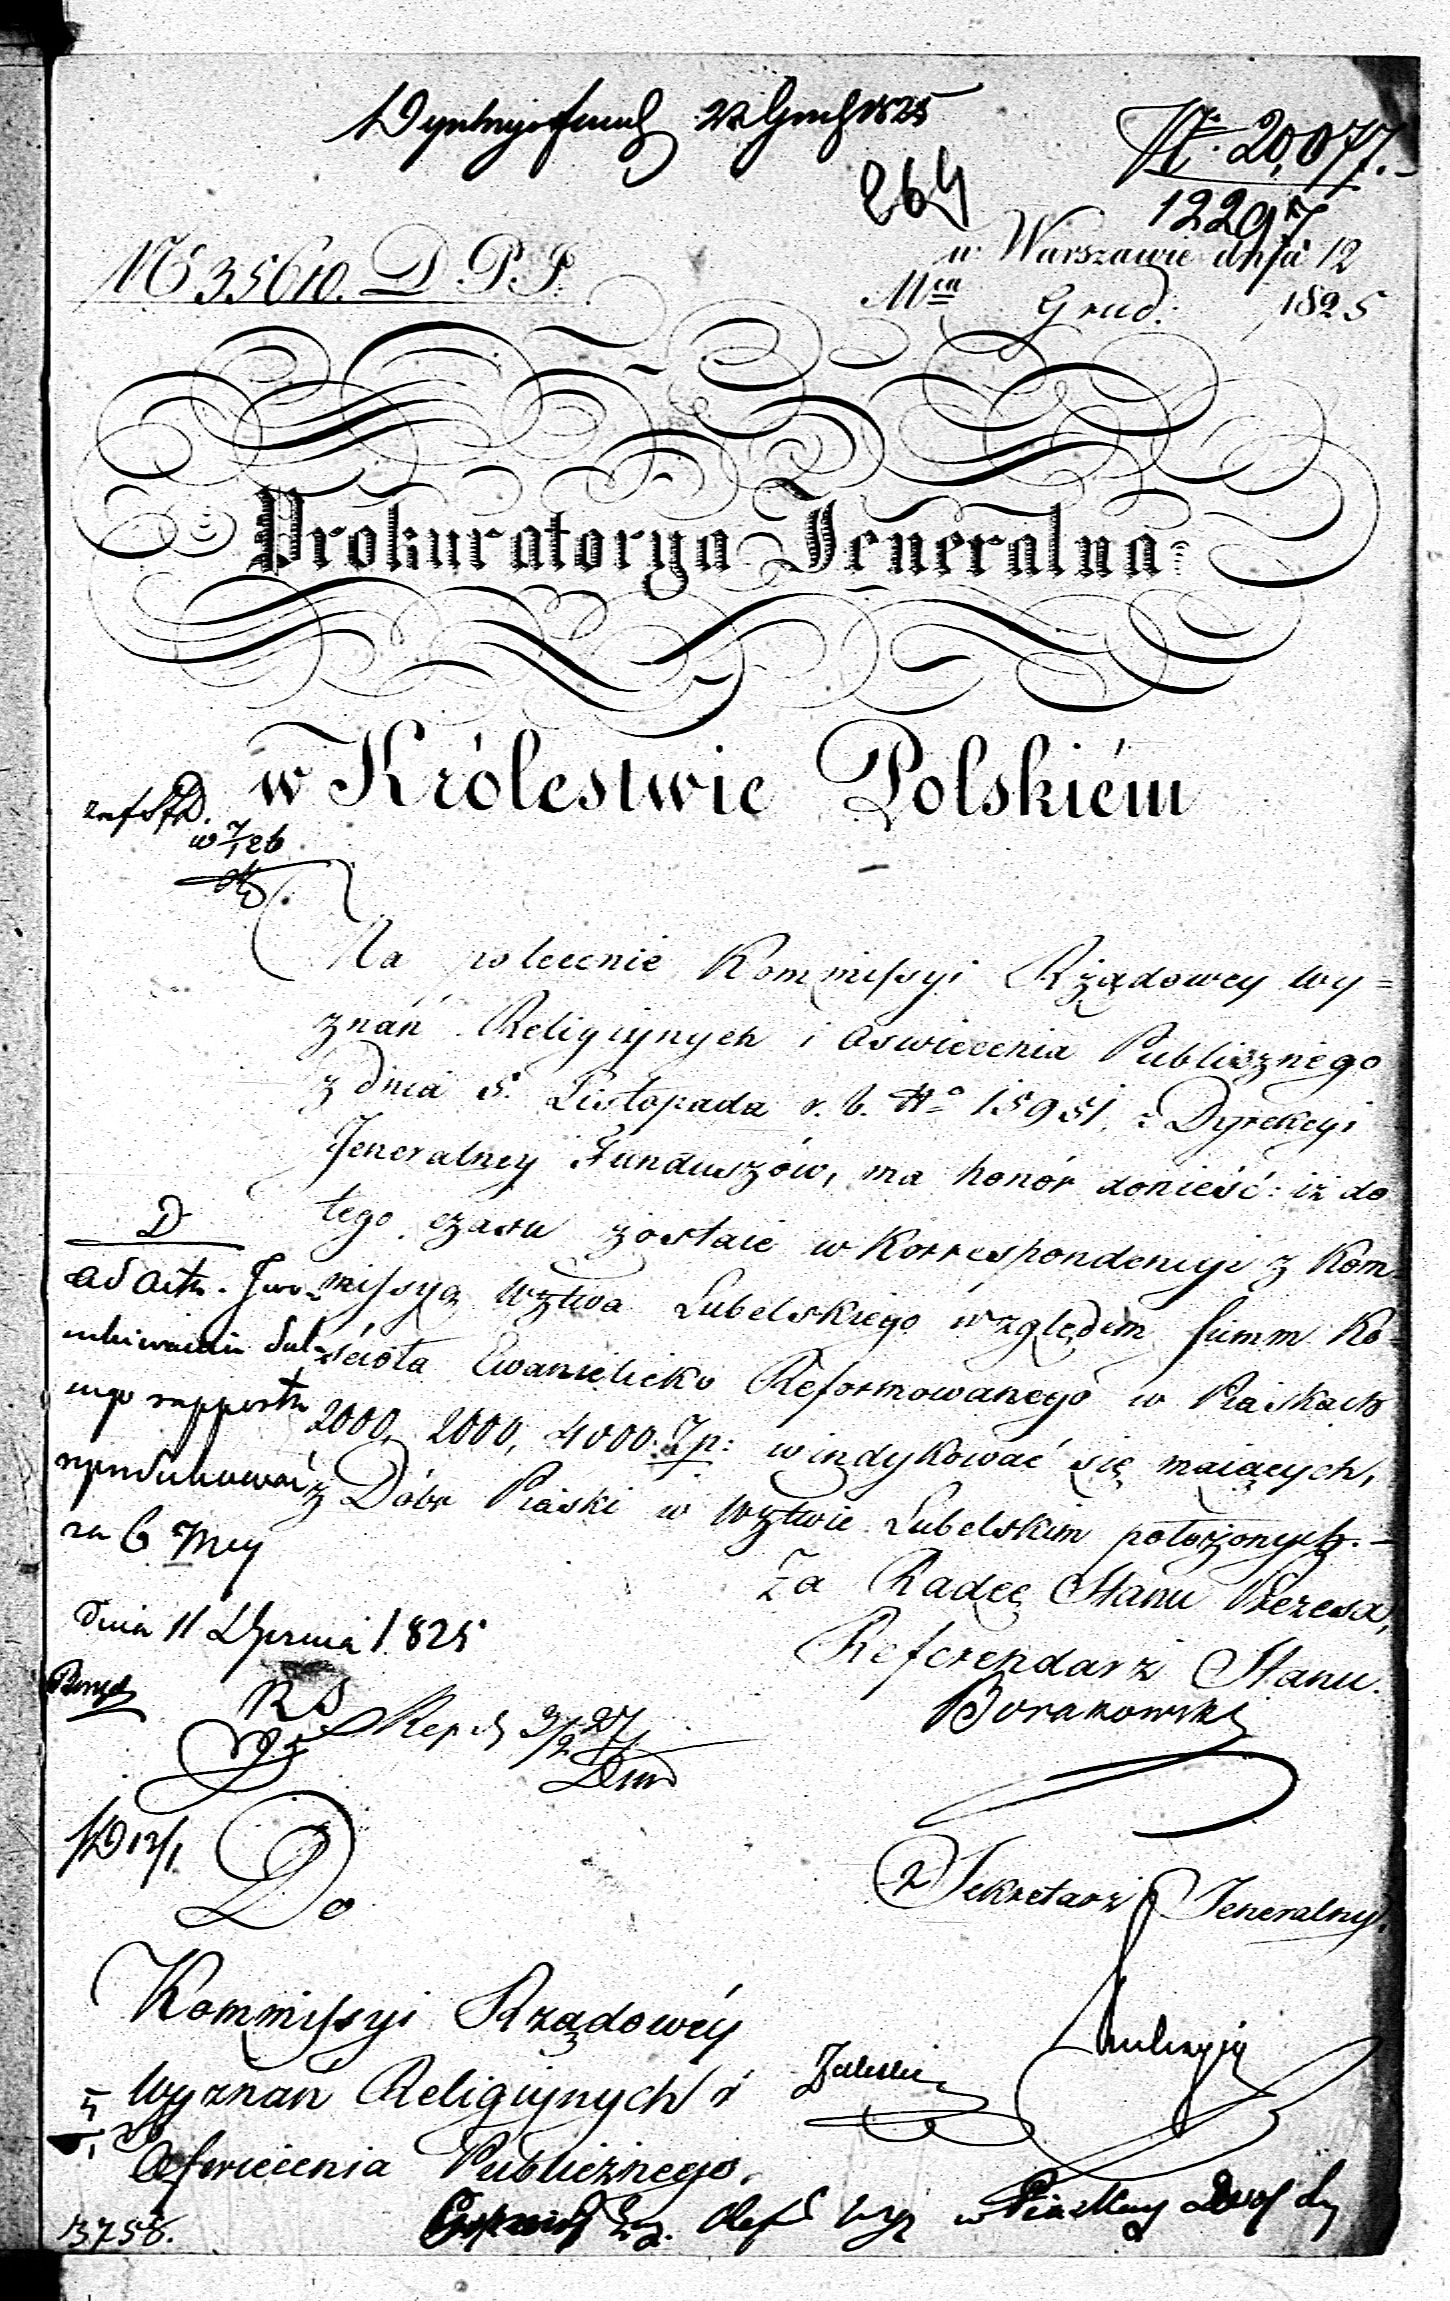 22 1825
No. 20,077.
264
12297
w Warszawie dnia 12
No 35610. D. P. J.
Mca Grud: 1825
Prokuratorya Jeneralna
w Królestwie Polskiém
Na polecenie Kommissyi Rządowey Wy=
znań Religiynych i Oswiecenia Publicznego
z dnia 5. Listopada r. b. No 15951. z Dyrekcyi
Jeneralney Funduszów, ma honór donieść: iż do
tego czasu zostaie w Korrespondencyi z Kom=
missyą Wztwa Lubelskiego względem summ Ko=
ścioła Ewanielicko Reformowanego w Piaskach
2000, 2000, 4000 Zp: windykować się maiących,
z Dóbr Piaski w Wztwie Lubelskim położonych.—
D
ad acta.
rapportu
za 6 Mcy
dnia 11 1825
Za Radcę Stanu Prezesa,
Referendarz Stanu.
Borakowski
Sekretarz Jeneralny.
Do
Kommissyi Rządowéy
Wyznań Religiynych i
Oswiecenia Publicznego.
Zaleski
13758.